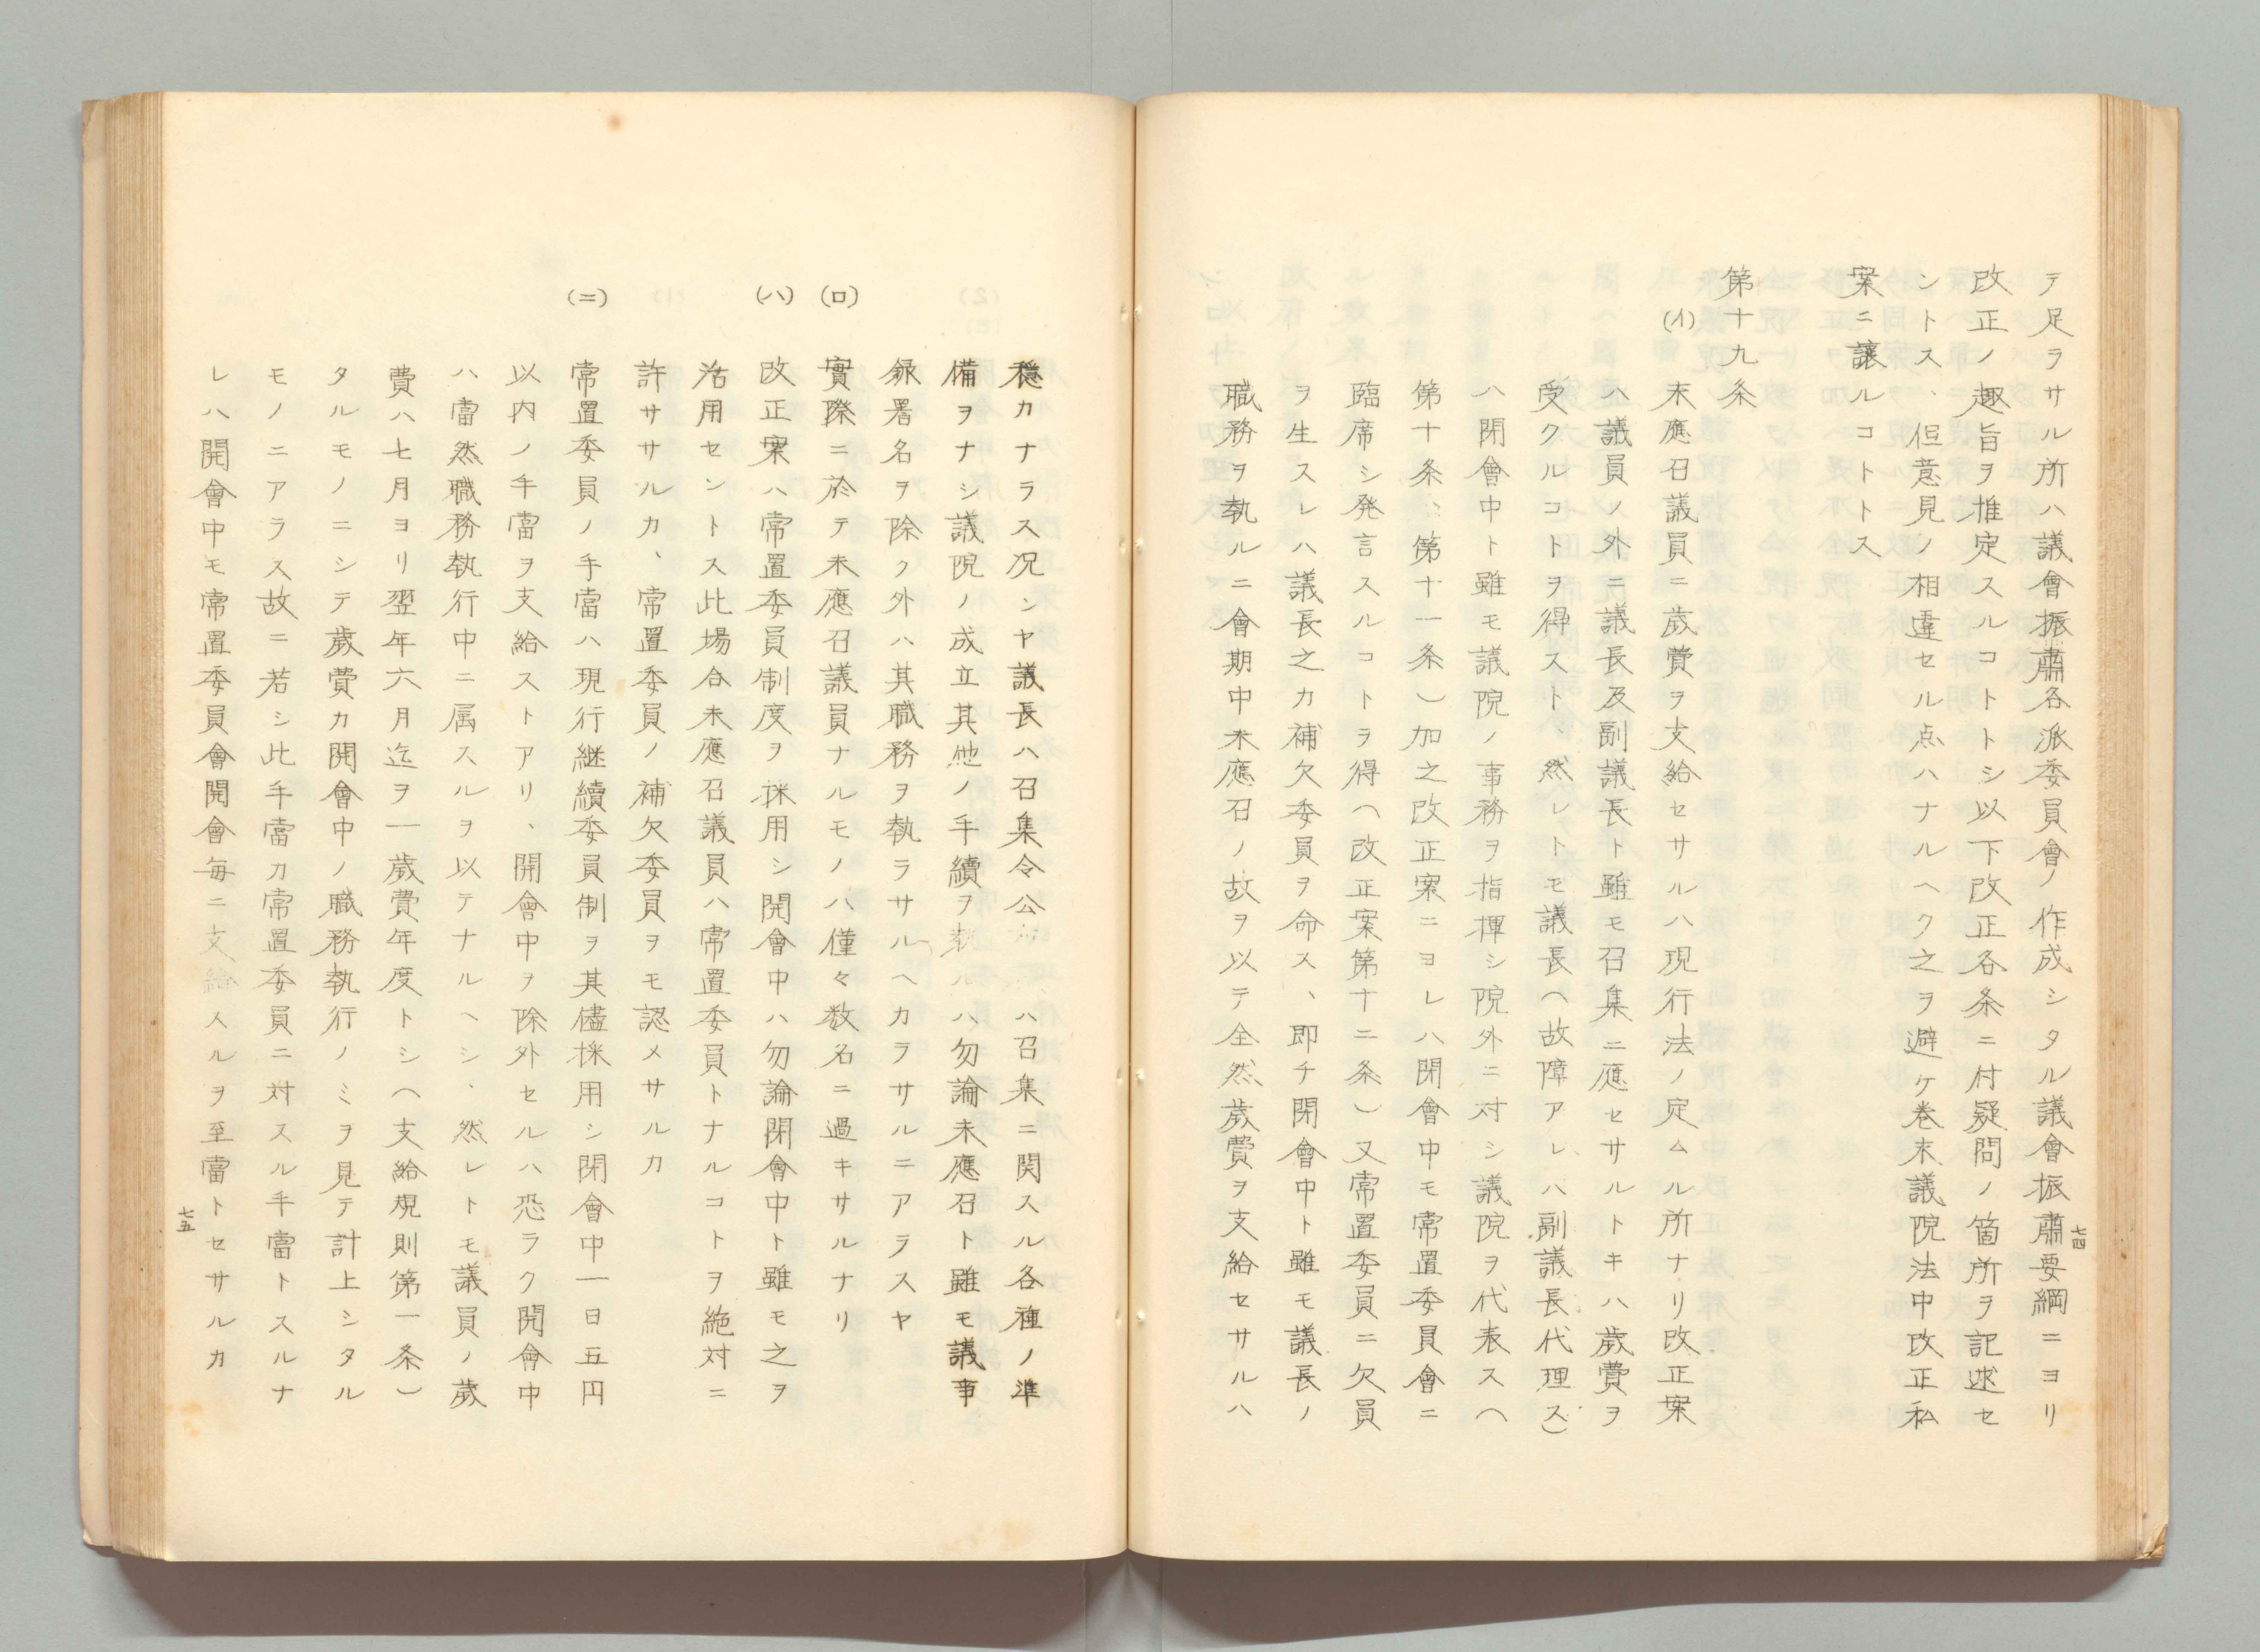 テ足ラサル所ハ議會振肅各派委員會ノ作成シタル議會振肅要綱ニヨリ
改正ノ趣旨ヲ推定スルコトトシ以下改正各条ニ付疑問ノ箇所ヲ記述セ
ントス、但意見ノ相違セル点ハナルヘク之ヲ避ケ巻末議院法中改正私
案ニ讓ルコトトス
第十九条
(イ) 未應召議員ニ歳費ヲ支給セサルハ現行法ノ定ムル所ナリ改正案
ハ議員ノ外ニ議長及副議長ト雖モ召集ニ應セサルトキハ歳費ヲ
受クルコトヲ得スト、然レトモ議長(故障アレハ副議長代理ス)
ハ閉會中ト雖モ議院ノ事務ヲ指揮シ院外ニ対シ議院ヲ代表ス(
第十条、第十一条)加之改正案ニヨレハ閉會中モ常置委員會ニ
臨席シ発言スルコトヲ得(改正案第十二条)又常置委員ニ欠員
ヲ生スレハ議長之カ補欠委員ヲ命ス、即チ閉會中ト雖モ議長ノ
職務ヲ執ルニ會期中未應召ノ故ヲ以テ全然歳費ヲ支給セサルハ
七四
穏カナラス況ンヤ議長ハ召集令公布ハ召集ニ関スル各種ノ準
備ヲナシ議院ノ成立其他ノ手續ヲ執ルハ勿論未應召ト雖モ議事
録署名ヲ除ク外ハ其職務ヲ執ラサルヘカラサルニアラスヤ
(ロ) 實際ニ於テ未應召議員ナルモノハ僅々数名ニ過キサルナリ
(ハ) 改正案ハ常置委員制度ヲ採用シ開會中ハ勿論閉會中ト雖モ之ヲ
活用セントス此場合未應召議員ハ常置委員トナルコトヲ絶対ニ
許ササルカ、常置委員ノ補欠委員ヲモ認メサルカ
(ニ) 常置委員ノ手當ハ現行継續委員制ヲ其儘採用シ閉會中一日五円
以内ノ手當ヲ支給ストアリ、開會中ヲ除外セルハ恐ラク開會中
ハ當然職務執行中ニ属スルヲ以テナルヘシ、然レトモ議員ノ歳
費ハ七月ヨリ翌年六月迄ヲ一歳費年度トシ(支給規則第一条)
タルモノニシテ歳費カ開會中ノ職務執行ノミヲ見テ計上シタル
モノニアラス故ニ若シ此手當カ常置委員ニ対スル手當トスルナ
レハ開會中モ常置委員會開會毎ニ支給スルヲ至當トセサルカ
七五